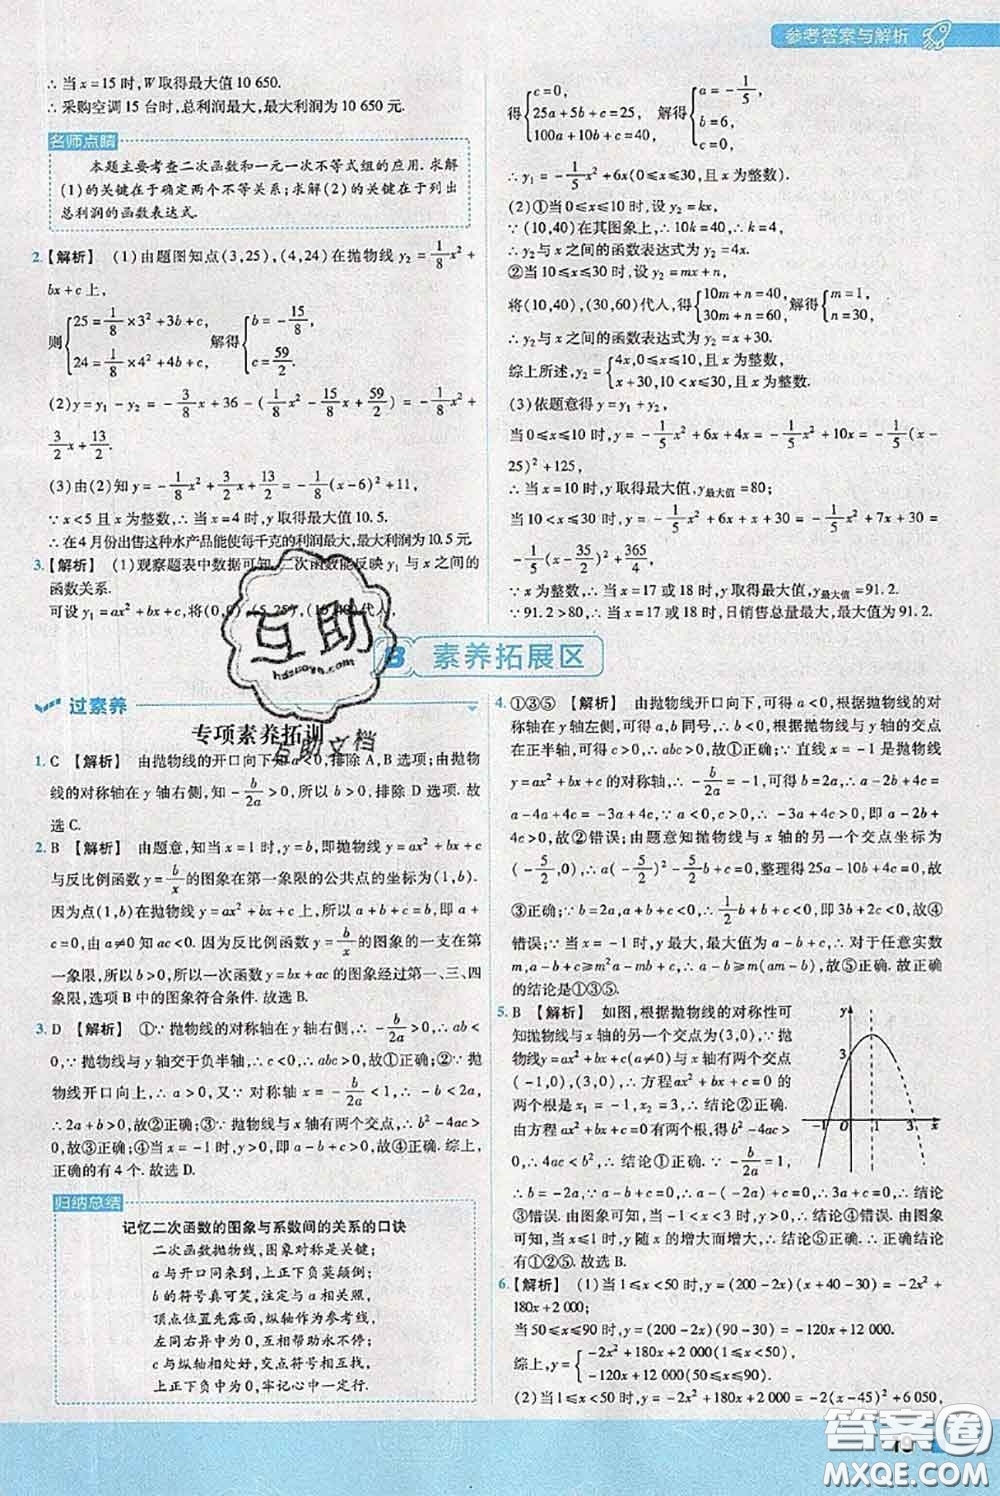 参考答案与解析
∴当x=15时,W取得最大值10 650.
∴采购空调15台时,总利润最大,最大利润为10 650元.
名师点睛
本题主要考查二次函数和一元一次不等式组的应用.求解
(1)的关键在于确定两个不等关系;求解(2)的关键在于列出
总利润的函数表达式.
2.【解析】 (1)由题图知点(3,25),(4,24)在抛物线y₂=1/8x²+
bx+c上,
则{25=1/8×3²+3b+c, 24=1/8×4²+4b+c, 解得{b=-15/8, c=59/2.
(2)y=y₁-y₂=-3/8x+36-(1/8x²-15/8x+59/2)=-1/8x²+
3/2x+13/2.
(3)由(2)知y=-1/8x²+3/2x+13/2=-1/8(x-6)²+11,
∵x<5且x为整数,∴当x=4时,y取得最大值10.5.
∴在4月份出售这种水产品能使每千克的利润最大,最大利润为10.5元.
3.【解析】 (1)观察题表中数据可知,二次函数能反映y₁与x之间的
函数关系.
可设y₁=ax²+bx+c,将(0,0),(5,25),(10,40)代入,
得{c=0, 25a+5b+c=25, 100a+10b+c=40, 解得{a=-1/5, b=6, c=0.
∴y₁=-1/5x²+6x(0≤x≤30,且x为整数).
(2)①当0≤x≤10时,设y₂=kx,
∵(10,40)在其图象上,∴10k=40,∴k=4,
∴y₂与x之间的函数表达式为y₂=4x.
②当10≤x≤30时,设y₂=mx+n,
将(10,40),(30,60)代入,得{10m+n=40, 30m+n=60, 解得{m=1, n=30,
∴y₂与x之间的函数表达式为y₂=x+30.
综上所述,y₂={4x,0≤x≤10,且x为整数, x+30,10<x≤30,且x为整数.
(3)依题意得y=y₁+y₂,
当0≤x≤10时,y=-1/5x²+6x+4x=-1/5x²+10x=-1/5(x-
25)²+125,
∴当x=10时,y取得最大值,y最大值=80;
当10<x≤30时,y=-1/5x²+6x+x+30=-1/5x²+7x+30=
-1/5(x-35/2)²+365/4,
∵x为整数,∴当x=17或18时,y取得最大值,y最大值=91.2.
∵91.2>80,∴当x=17或18时,日销售总量最大,最大值为91.2.
B 素养拓展区
过素养
专项素养拓训
1. C 【解析】 由抛物线的开口向下知a<0,排除A,B选项;由抛物
线的对称轴在y轴右侧,知-b/2a>0,所以b>0,排除D选项.故
选C.
2. B 【解析】 由题意,知当x=1时,y=b,即抛物线y=ax²+bx+c
与反比例函数y=b/x的图象在第一象限的公共点的坐标为(1,b).
因为点(1,b)在抛物线上,所以a+b+c=b,即a+
c=0,由a≠0知ac<0.因为反比例函数y=b/x的图象的一支在第
一象限,所以b>0,所以一次函数y=bx+ac的图象经过第一、三、四
象限,选项B中的图象符合条件.故选B.
3. D 【解析】 ①∵抛物线的对称轴在y轴右侧,∴-b/2a>0,∴ab
<0,∵抛物线与y轴交于负半轴,∴c<0,∴abc>0,故①正确;②∵抛
物线开口向上,∴a>0,又∵对称轴x=-b/2a<1,∴-b<2a,
∴2a+b>0,故②正确;③∵抛物线与x轴有两个交点,∴b²-4ac>
0,故③正确;④当x=-1时,y>0,即a-b+c>0,故④正确.综上,
正确的有4个.故选D.
归纳总结
记忆二次函数的图象与系数间的关系的口诀
二次函数抛物线,图象对称是关键;
a与开口同来到,上正下负莫颠倒;
b的符号真可笑,注定与a相关照;
顶点位置先露面,纵轴作为参考线,
左同右异中为0,相互帮助永不停;
c与纵轴相处好,交点符号相互找,
上正下负中为0,牢记心中一定行.
4. ①③⑤ 【解析】 由抛物线开口向下,可得a<0,∵抛物线的对
称轴在y轴左侧,可得a,b同号,∴b<0.∵抛物线与y轴的交点
在正半轴,可得c>0,∴abc>0,故①正确;∵直线x=-1是抛物线
y=ax²+bx+c的对称轴,∴-b/2a=-1,可得b=2a,a-2b+4c=
a-4a+4c=-3a+4c,∵a<0,c>0,∴-3a+4c>0,即a-2b+
4c>0,故②错误;由题意可知抛物线与x轴的另一个交点坐标为
(-5/2,0),∴a(-5/2)²-5/2b+c=0,整理得25a-10b+4c=0,故
③正确;∵b=2a,a+b+c<0,∴1/2b+b+c<0,即3b+2c<0,故④
错误;∵当x=-1时,y最大,最大值为a-b+c,∴对于任意实数
m,a-b+c≥m²a-mb+c,∴a-b≥m(am-b),故⑤正确.故正确
的结论是①③⑤.
5. B 【解析】 如图,根据抛物线的对称性可
知抛物线与x轴的另一个交点为(3,0),∵抛
物线y=ax²+bx+c(a≠0)与x轴有两个交点
(-1,0),(3,0),∴方程ax²+bx+c=0的
两个根是x₁=-1,x₂=3,∴结论②正确.
由方程ax²+bx+c=0有两个根,得b²-4ac>
0,∴4ac-b²<0,∴结论①正确.∵-b/2a=1,
∴b=-2a,∵a-b+c=0,∴c=-3a,∴3a+c=0,∴结论
③错误.由图象可知,当y>0时,-1<x<3,∴结论④错误.由图象
可知,当x<1时,y随x的增大而增大,∴结论⑤正确.综上,正确的
有①②⑤.故选B.
y
3
-1 O 1 3 x
6.【解析】 (1)当1≤x<50时,y=(200-2x)(x+40-30)=-2x²+
180x+2 000;
当50≤x≤90时,y=(200-2x)(90-30)=-120x+12 000.
综上,y={-2x²+180x+2 000(1≤x<50), -120x+12 000(50≤x≤90).
(2)当1≤x<50时,y=-2x²+180x+2 000=-2(x-45)²+6 050,
互助
hdzuoye.com
互助文档
答案圈
MXQE.COM